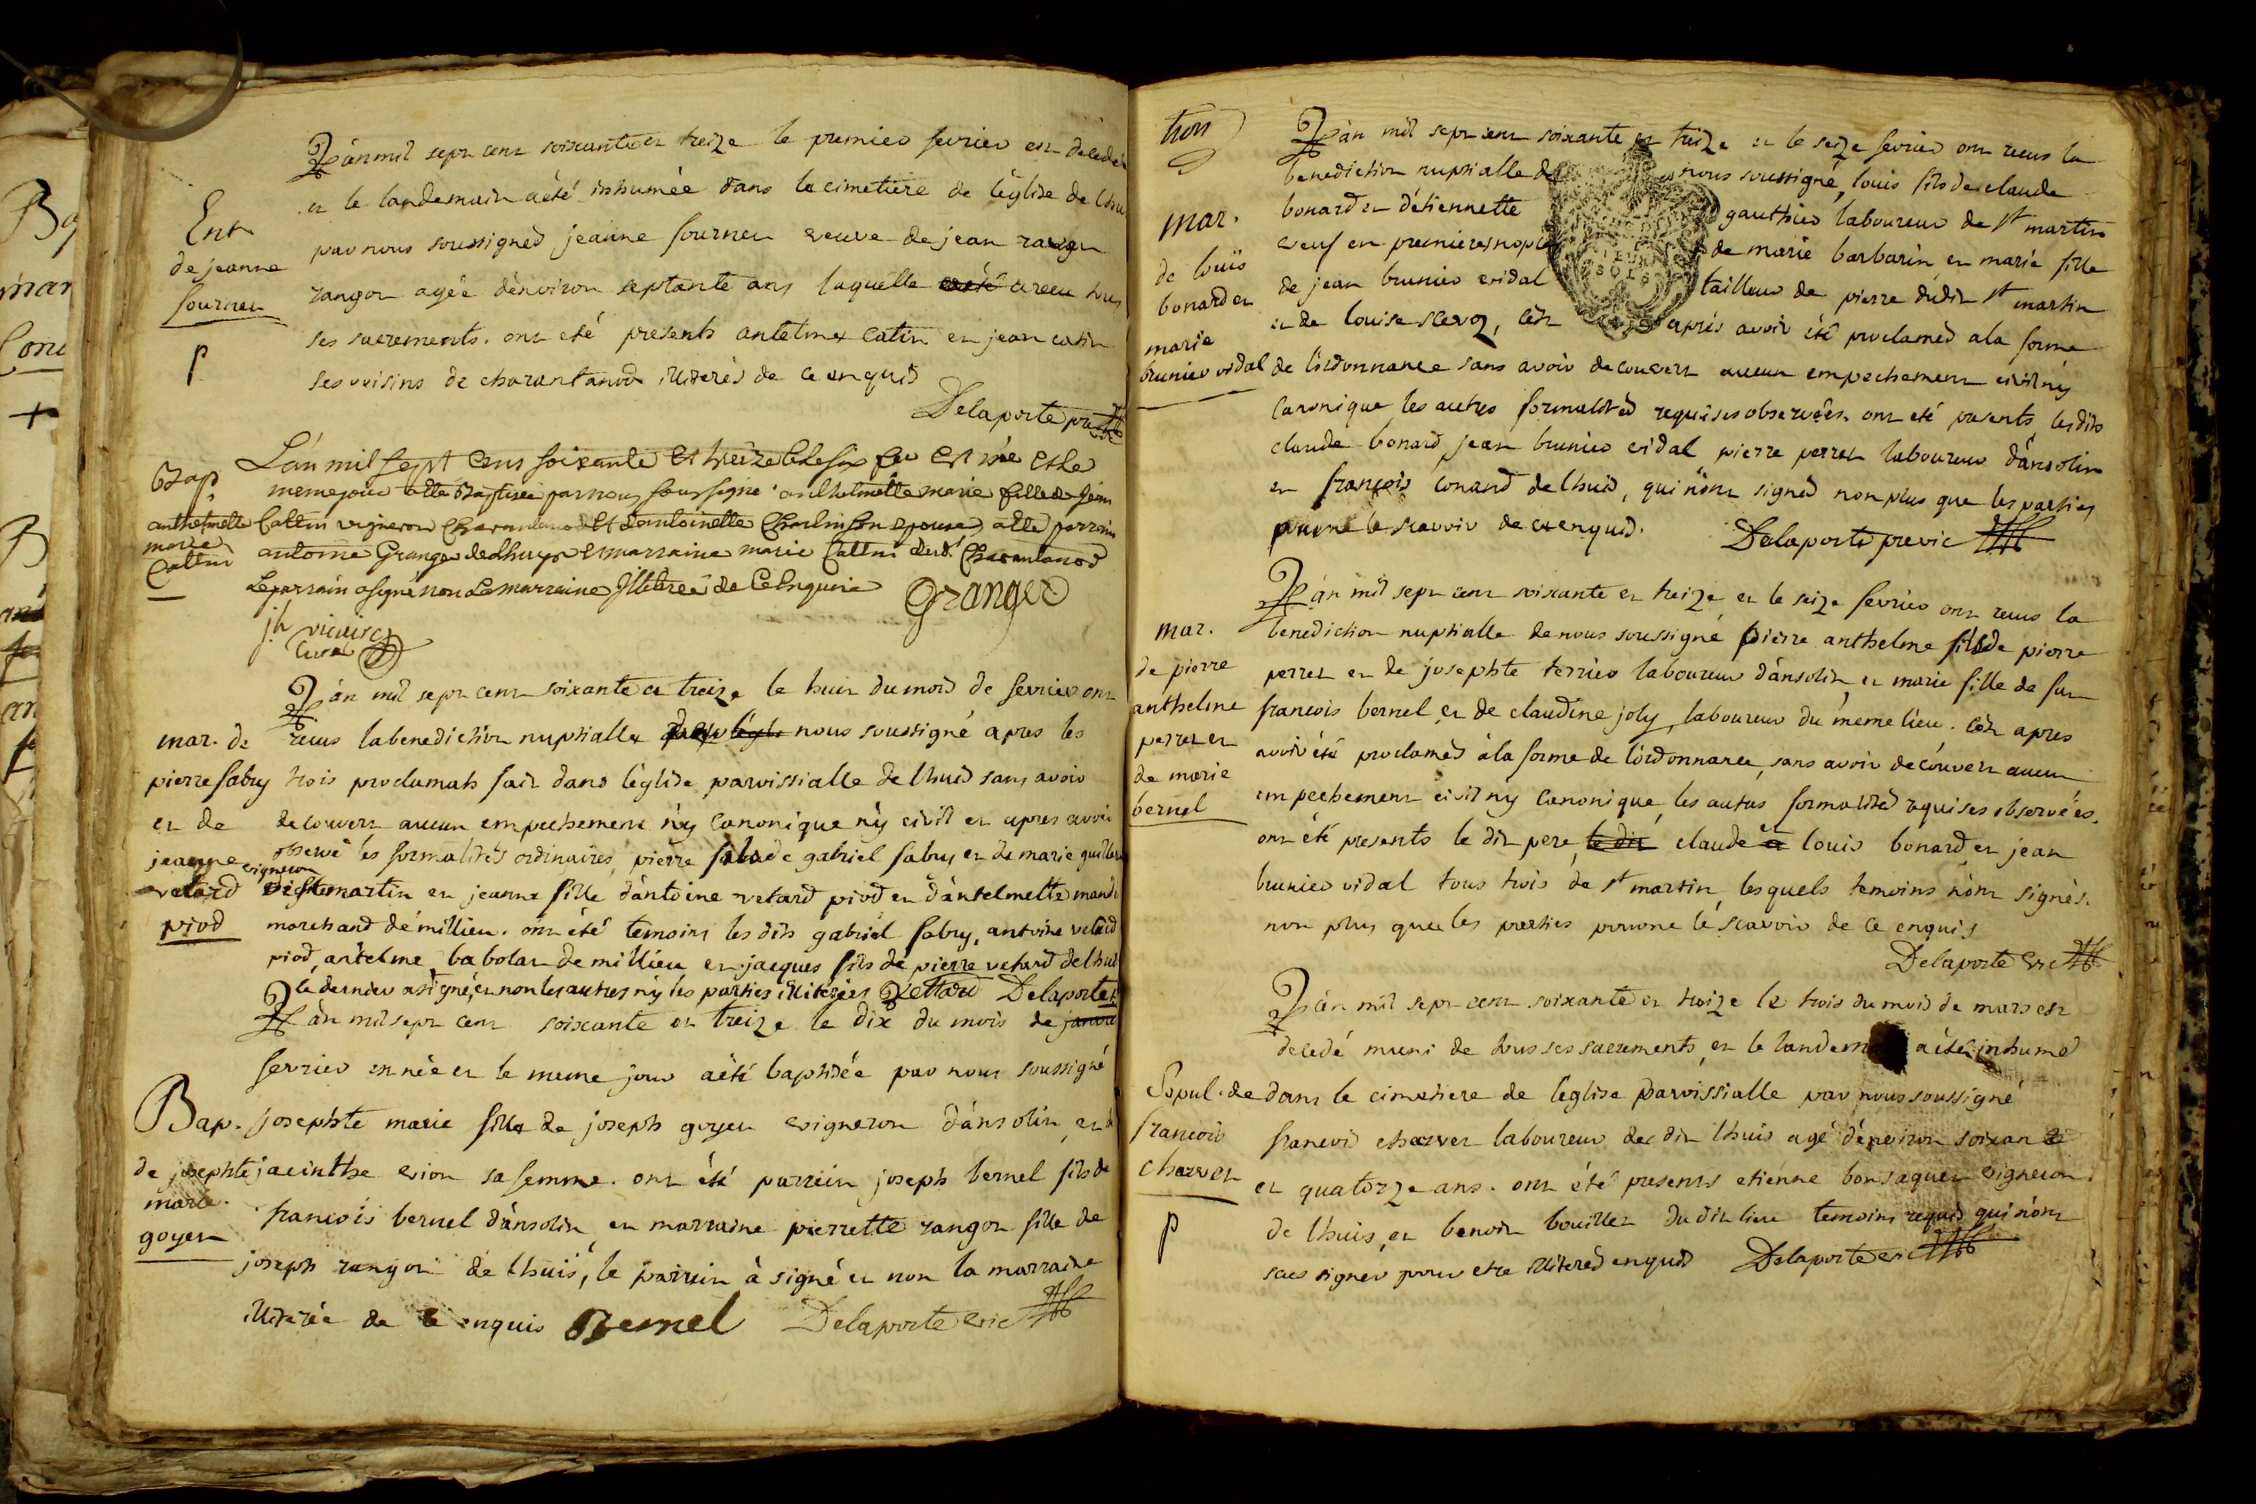 L'an mil sept cent soixante et treize le premier fevrier est décédée
et le landemain aété inhumée dans le cimetiere de l'église de lhui
Ent
de jeanne
fournet
p
par nous soussigned jeanne fournet veuve de jean
rangon agée d'environ septante ans laquelle a recu tous
ses sacrements. ont eté presents antelme catin et jean catin
ses voisins de charantanod illiteres de ce enquis
Delaporte
Bap
anthelmette
marie
Cattin
L'an mil sept cens soixante et treize le six fev est née et le
meme jour atte Baptisée par nous soussigné anthelmette marie fille de
Cattin vigneron Charantanod et d'antoinette Charlin son epouse, atte parrain
antoine Granger de Lhuys et marraine marie Cattin dud. Charantanod
Le parrain a signé non la marraine Illiterée de Ce Enquise Granger
curé
mar. de
pierre fabry
et de
jeanne
vetard
piod
L'an mil sept cent soixante et treize le huit du mois de fevrier ont
recus la benediction nuptialle nous soussigné apres les
trois proclamats fait dans l'église paroissialle de lhuis sans avoir
decouvert aucun empechement ny canonique ny civil et apres avoir
observé les formalités ordinaires, pierre fils de gabriel fabry et de marie
vigneron
martin et jeanne fille d'antoine vetard piod et d'antelmette
marchand de millieu. ont été temoins les dits gabriel fabry, antoine vetard
piod, antelme babolat de millieu et jacques fils de pierre vetard de lhuis
le dernier a signé, et non les autres ny les parties illiterées Vettard Delaporte
L'an mil sept cent soixante et treize le dix du mois de
fevrier est née et le meme jour aété baptisée par nous soussigné
Bap.
de josephte
marie
goyet
josephte marie fille de joseph goyet vigneron d'ansolin, et
jacinthe vion sa femme. ont été parrein joseph bernel fils de
francois bernel d'ansolin et marraine pierrette rangon fille de
joseph rangon de lhuis, le parrein à signé et non la marraine
illiterée de ce enquis Bernel Delaporte vic
tron
mar.
de louis
bonard et
marie
brunier vidal
L'an mil sept cent soixante et treize et le seize fevrier ont recus la
benediction nuptialle de nous soussigné, louis fils de claude
bonard et d'étiennette gauthier laboureur de st martin
veuf en premieres nopces de marie barbarin et marie fille
de jean brunier vidal tailleur de pierre dudit st martin
et de louise, cet aprés avoir été proclamed a la forme
de l'ordonnance sans avoir decouvert aucun empechement civil ny
canonique les autres formalited requises observées. ont eté presents lesdits
claude bonard jean brunier vidal pierre perret laboureur d'ansolin
et françois conand de lhuis, qui n'ont signed non plus que les parties
pour ne le scavoir de ce enquis. Delaporte p vic
mar.
de pierre
anthelme
perret et
de marie
bernel
L'an mil sept cent soixante et treize et le seize fevrier ont recus la
benediction nuptialle de nous soussigné pierre anthelme fils de pierre
perret et de josephte terrier laboureur d'ansolin, et marie fille de fut
francois bernel et de claudine joly, laboureur du même lieu. cet apres
avoir été proclamed à la forme de l'ordonnance, sans avoir découvert aucun
empechement civil ny canonique, les autres formalited requises observées.
ont été presents le dit pere, le dit claude et louis bonard et jean
brunier vidal tous trois de st martin, lesquels temoins n'ont signés.
non plus que les parties pour ne le scavoir de ce enquis
Delaporte vic
L'an mil sept cent soixante et treize le trois du mois de mars est
decedé muni de tous ses sacrements, et le landem aété inhumé
Sepul. de
francois
charvet
p
dans le cimetiere de l'eglise paroissialle par nous soussigné
francois charvet laboureur de dit lhuis agé d'environ soixante
et quatorze ans. ont été presents etiénne bonsaquet vigneron
de lhuis, et benoit bouillet dudit lieu temoins requis qui n'ont
sces signer pour etre illitered enquis Delaporte vic